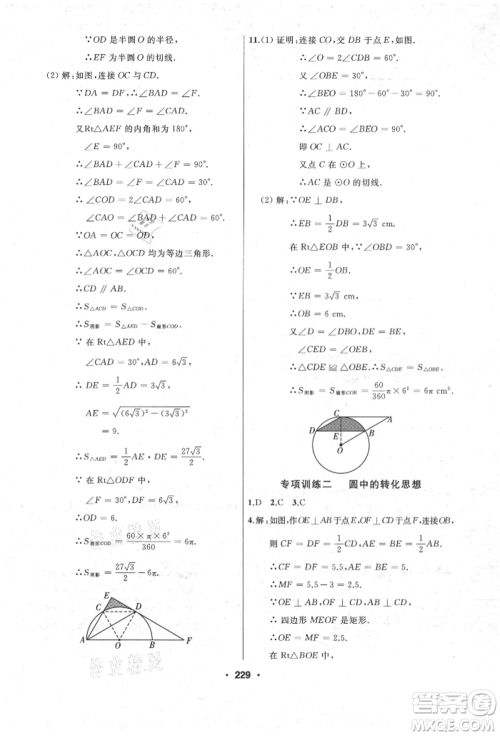 ∵OD 是半圆 O 的半径,
∴EF 是半圆 O 的切线.
(2) 解:如图,连接 OC 与 CD.
∵DA = DF, ∴∠BAD = ∠F.
∴∠BAD = ∠F = ∠CAD.
又Rt△AEF 的内角和为 180°,
∠E = 90°,
∴∠BAD + ∠CAD + ∠F = 90°.
∴∠F = 30°,
∠CAO = ∠BAD + ∠CAD = 60°.
∵OA = OC = OD,
∴△AOC, △OCD 均为等边三角形.
∴∠AOC = ∠OCD = 60°.
∴CD ∥ AB.
∴S△ACD = S△COD.
∴S阴影 = S△AED − S扇形COD.
∵ 在 Rt△AED 中,
∠CAD = 30°, AD = 6√3,
∴DE = 1/2 AD = 3√3,
AE = √((6√3)² − (3√3)²)
= 9.
∴S△AED = 1/2 AE · DE = 27√3/2.
∵ 在 Rt△ODF 中,
∠F = 30°, DF = 6√3,
∴OD = 6.
∴S扇形COD = 60 × π × 6²/360 = 6π.
∴S阴影 = 27√3/2 − 6π.
E
C D
A O B F
11. (1) 证明:连接 CO, 交 DB 于点 E,
∴∠O = 2∠CDB = 60°.
又∵∠OBE = 30°,
∴∠BEO = 180° − 60° − 30° = 90°.
∵AC ∥ BD,
∴∠ACO = ∠BEO = 90°.
即 OC ⊥ AC.
又点 C 在 ⊙O 上,
∴AC 是 ⊙O 的切线.
(2) 解:∵OE ⊥ DB,
∴EB = 1/2 DB = 3√3 cm.
在 Rt△EOB 中,
∵∠OBD = 30°,
∴OE = 1/2 OB.
∵EB = 3√3 cm,
∴OB = 6 cm.
又∠D = ∠DBO, DE = BE,
∠CED = ∠OEB,
∴△CDE ≌ △OBE.
∴S阴影 = S扇形COB = 60/360 π · 6² = 6π (cm²).
C A
D E B
O
专项训练二 圆中的转化思想
1. D 2. C 3. C
4. 解:如图,作 OE ⊥ AB 于点 E, OF ⊥ CD 于点 F, 连接 OB,
则 CF = DF = 1/2 CD.
∴CF = DF = 5.5, AE = BE = 4.
∴MF = 5.5 − 3 = 2.5.
∴ 四边形 MEOF 是矩形.
∴OE = MF = 2.5.
在 Rt△BOE 中,
229